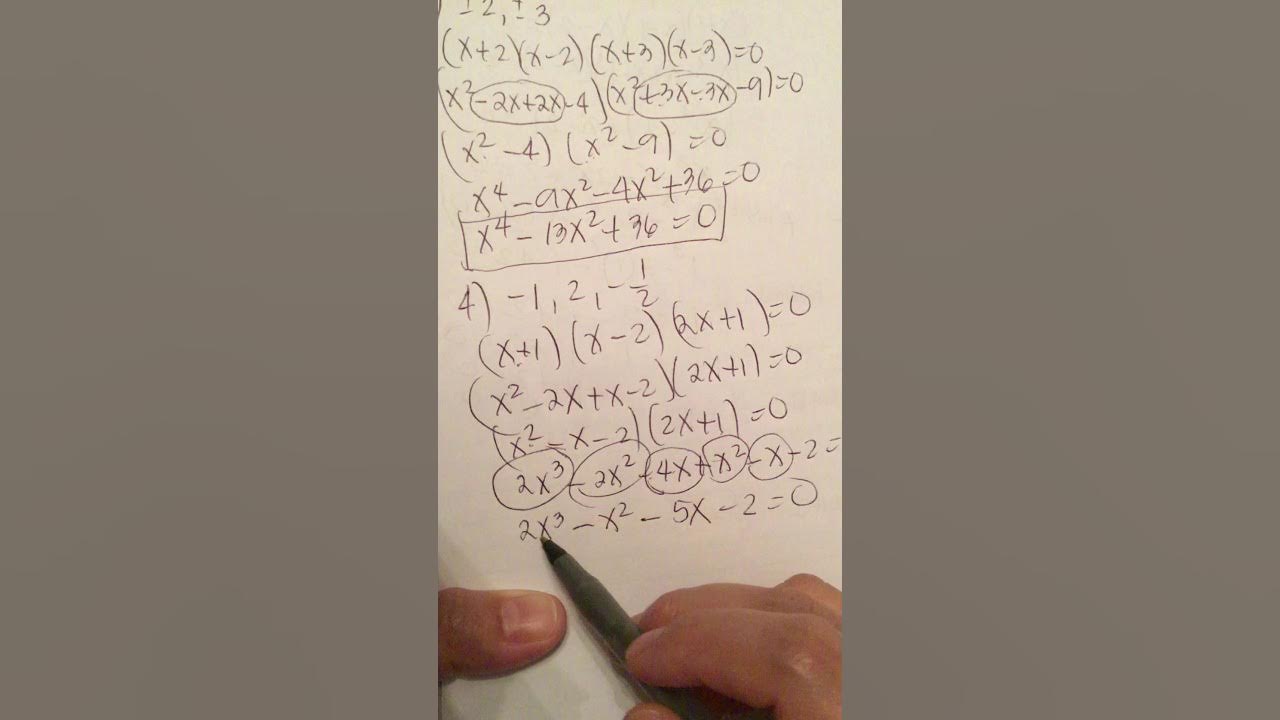 ) ±2, ±3
(x+2)(x-2)(x+3)(x-3)=0
(x²-2x+2x-4)(x²+3x-3x-9)=0
(x²-4)(x²-9)=0
x⁴-9x²-4x²+36=0
x⁴-13x²+36=0
4) -1, 2, -1/2
(x+1)(x-2)(2x+1)=0
(x²-2x+x-2)(2x+1)=0
(x²-x-2)(2x+1)=0
2x³-2x²-4x+x²-x-2=
2x³-x²-5x-2=0